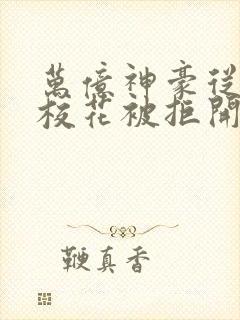 萬億神豪從
校花被拒開
鞭真香